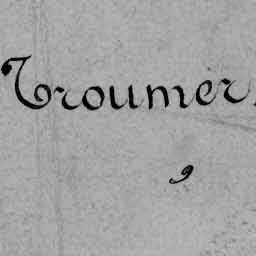 Troumer,
9